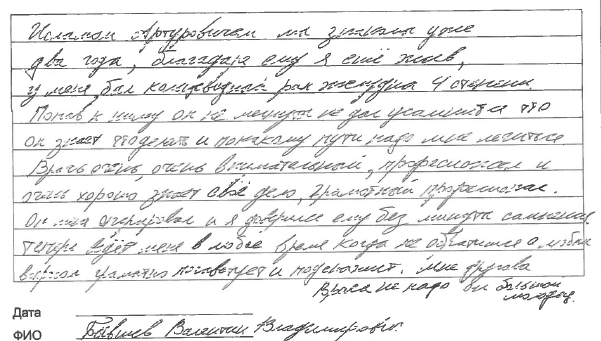 Исламом Артуровичем мы знакомы уже
два года, благодаря ему я ещё жив,
у меня был рак желудка 4 степени.
Попав к нему он не минуты не дал усомнится что
он знает что делать и по какому пути надо мне лечиться
Врачь очень, очень внимательный, профессионал и
очень хорошо знает своё дело, грамотный профессионал.
Он меня оперировал и я доверился ему без минуты сомнения
теперь ведёт меня в любое время когда не обратился с любым
грамотно посоветует и подскажет. Мне другова
врача не надо он большой
молодец.
Дата
ФИО Валентин Владимирович